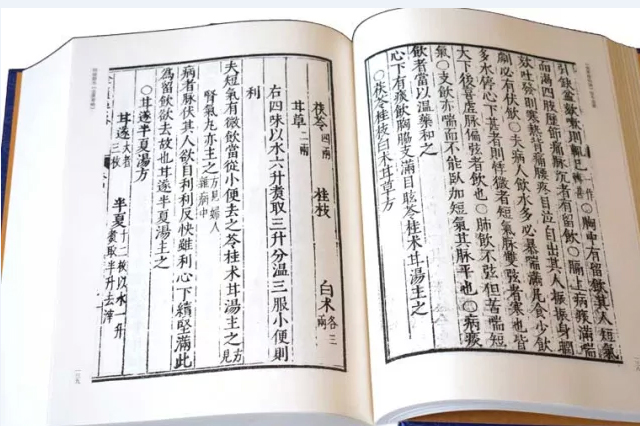 引缺盆欬嗽則輒已一作轉甚○胸中有留飲其人短氣
而渴四肢歷節痛脉沉者有留飲○膈上病痰滿喘
欬吐發則寒熱背痛腰疼目泣自出其人振振身瞤
劇必有伏飲○夫病人飲水多必暴喘滿凡食少飲
多水停心下甚者則悸微者短氣脉雙弦者寒也皆
大下後善虛脉偏弦者飲也○肺飲不弦但苦喘短
氣○支飲亦喘而不能臥加短氣其脉平也○病痰
飲者當以温藥和之
心下有痰飲胸脇支滿目眩苓桂术甘湯主之
○茯苓桂枝白术甘草方
茯苓四兩 桂枝 白术各三兩
甘草二兩
右四味以水六升煑取三升分温三服小便則
利
夫短氣有微飲當從小便去之苓桂术甘湯主之方見
腎氣丸亦主之方見婦人雜病中
病者脉伏其人欲自利利反快雖利心下續堅滿此
爲留飲欲去故也甘遂半夏湯主之
○甘遂半夏湯方
甘遂大者三枚 半夏十二枚以水一升煑取半升去滓